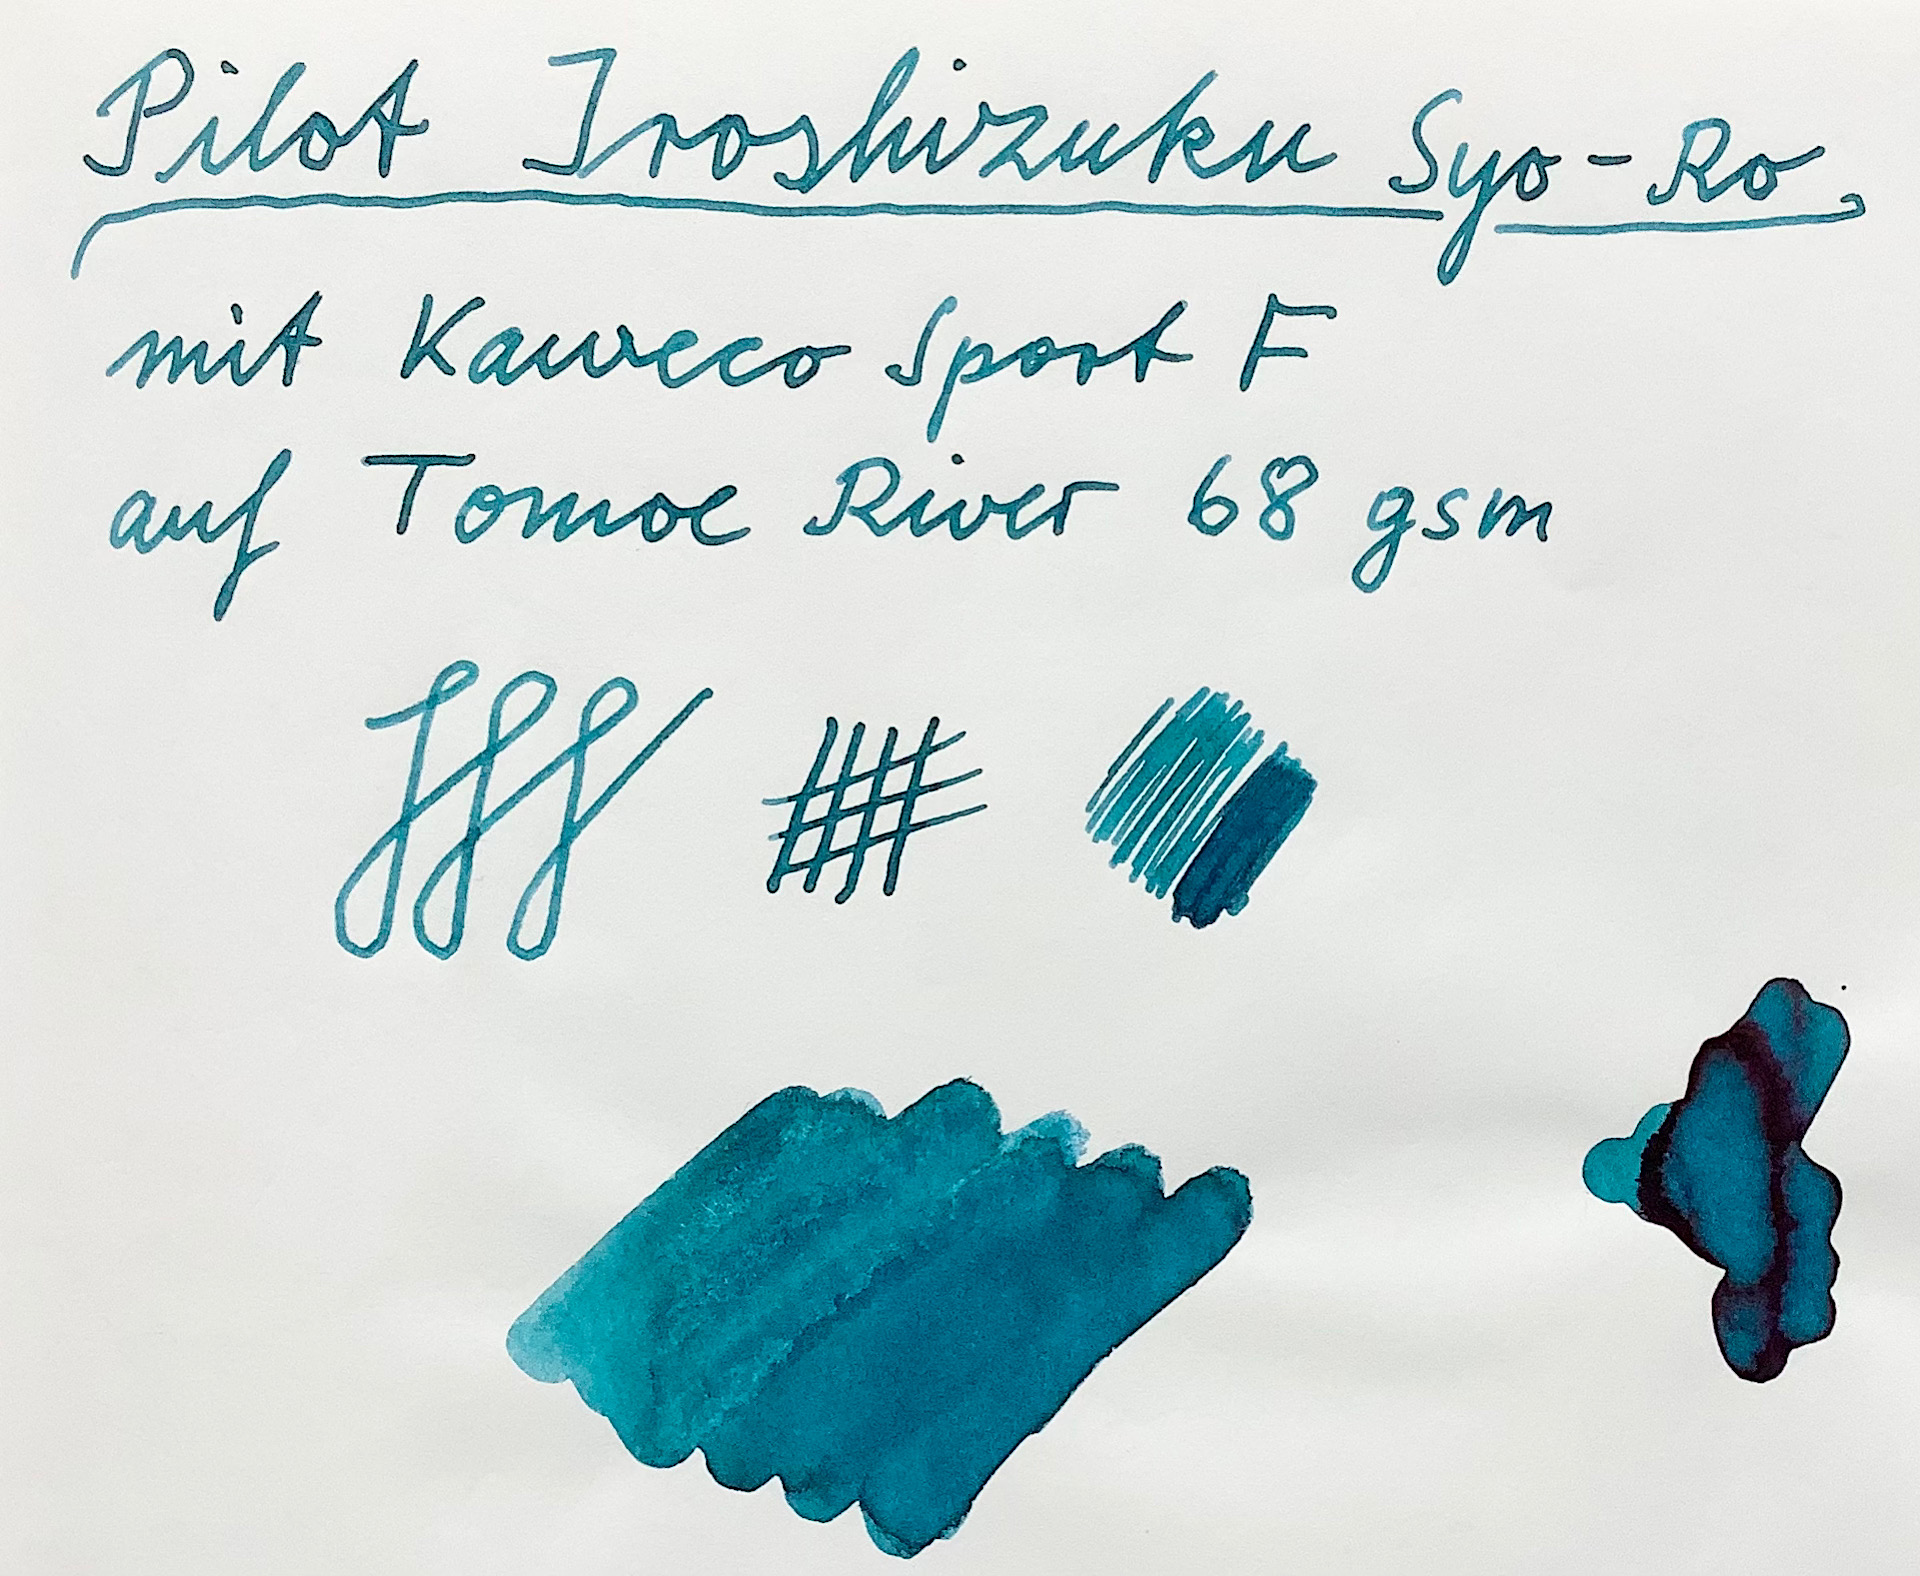 Pilot Iroshizuku Syo-Ro
mit Kaweco Sport F
auf Tomoe River 68 gsm